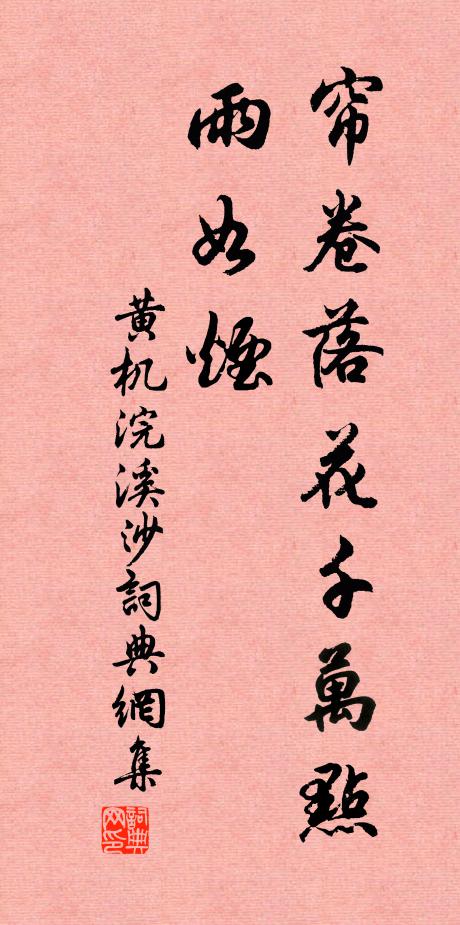 帘卷落花千萬點
雨如煙
黄机浣溪沙詞典網集
詞典网印